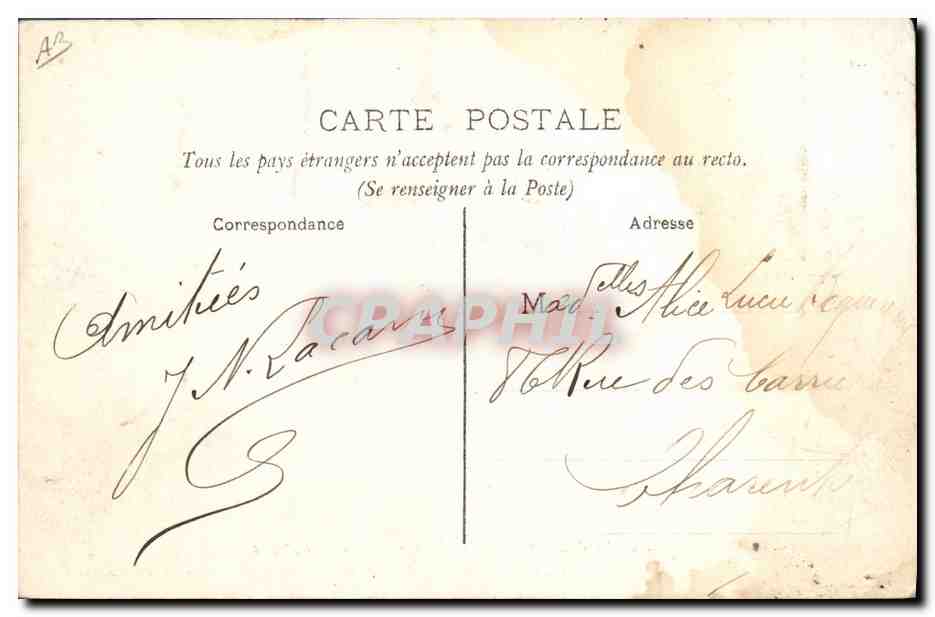 AB
CARTE POSTALE
Tous les pays étrangers n'acceptent pas la correspondance au recto.
(Se renseigner à la Poste)
Correspondance
Amitiés
J N. Lacarn
Adresse
Mademelles Alice Lucie
Rue des Carri
Charent
CPAPHIL